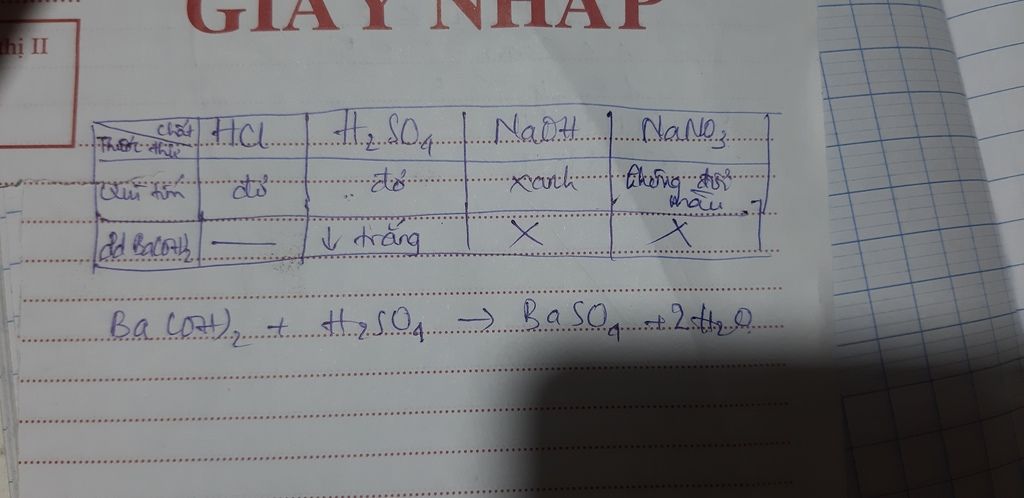 GIẤY NHÁP
thị II
Chất HCl H₂SO₄ NaOH NaNO₃
Thuốc thử
Quì tím đỏ đỏ xanh không đổi
màu
dd Ba(OH)₂ — ↓ trắng X X
Ba(OH)₂ + H₂SO₄ → BaSO₄ + 2H₂O